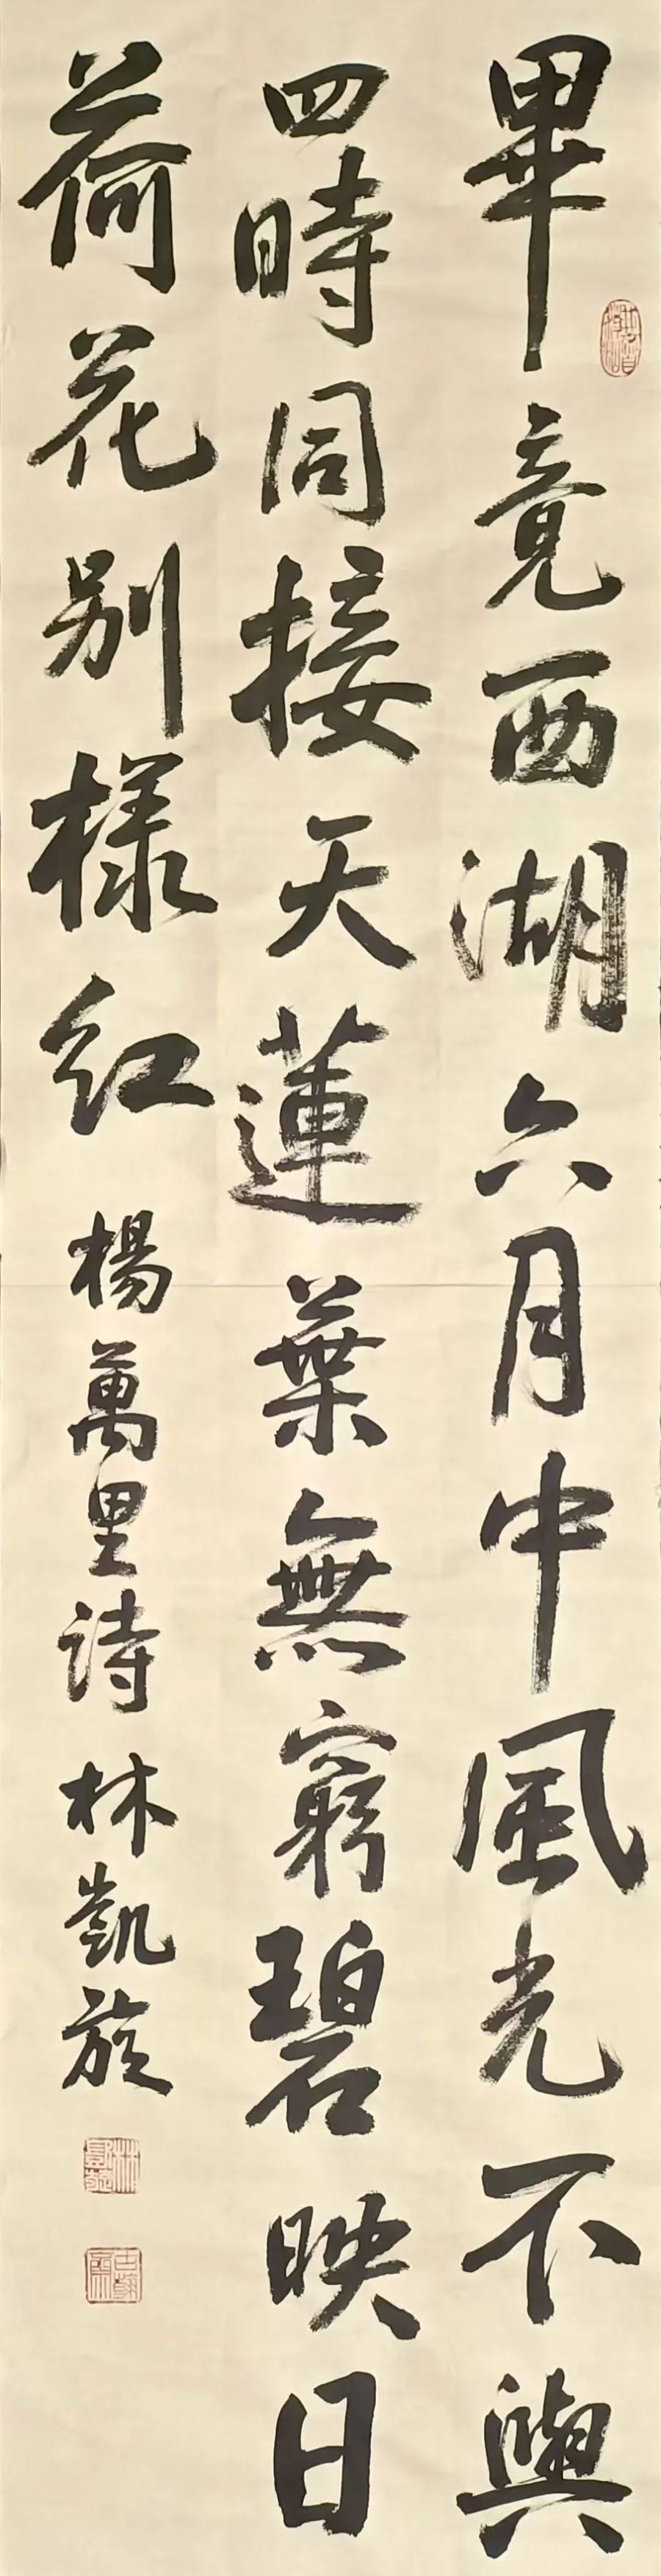 畢竟西湖六月中風光不與
四時同接天蓮葉無窮碧映日
荷花别樣红 楊萬里詩 林凱旋